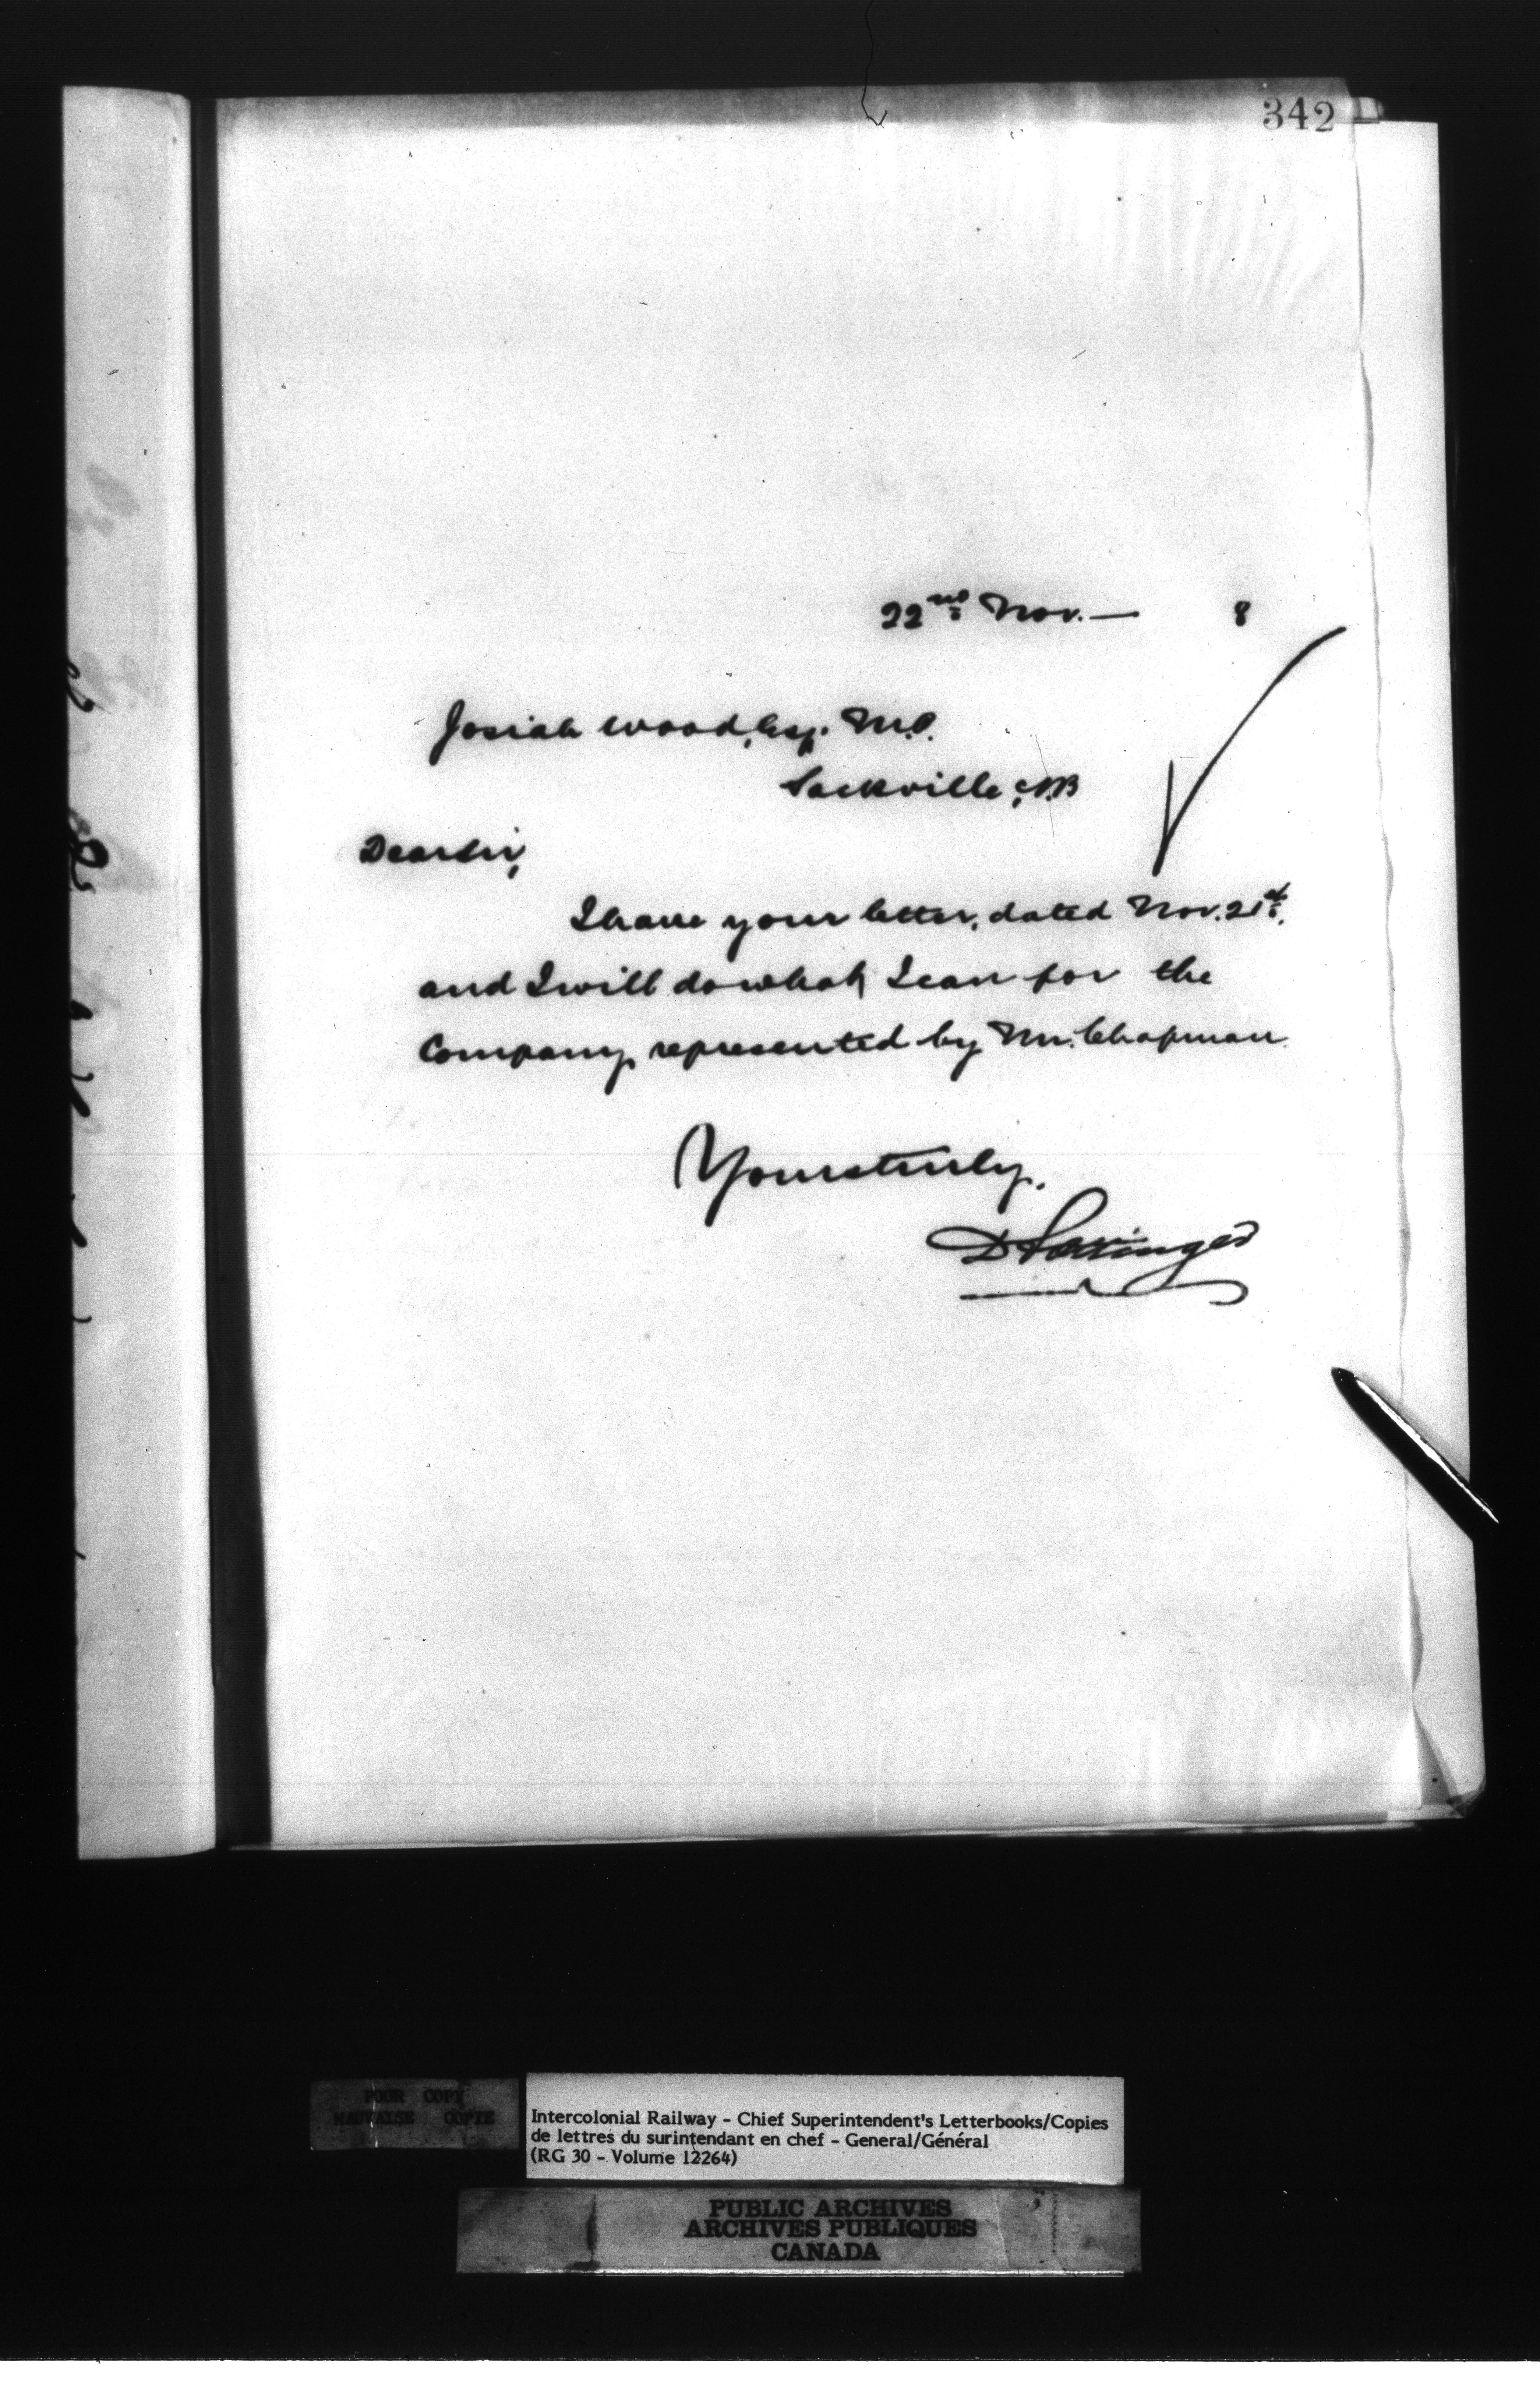 342
22nd Nov. — 8
Josiah Wood, Esq. M.P.
Sackville, N.B
Dear Sir,
I have your letter, dated Nov. 21st.
and I will do what I can for the
Company represented by Mr. Chapman.
Yours truly,
D Pottinger
POOR COPY
MAUVAISE COPIE
Intercolonial Railway - Chief Superintendent's Letterbooks/Copies
de lettres du surintendant en chef - General/Général
(RG 30 - Volume 12264)
PUBLIC ARCHIVES
ARCHIVES PUBLIQUES
CANADA